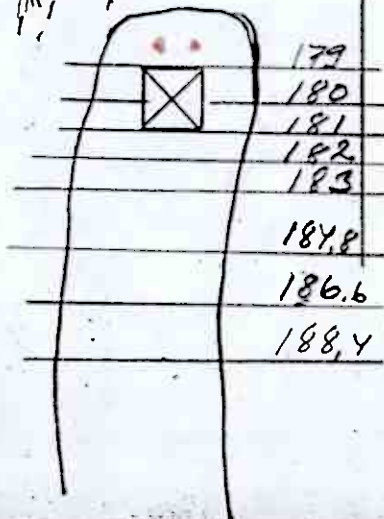 179
180
181
182
183
184,8
186.6
188,4